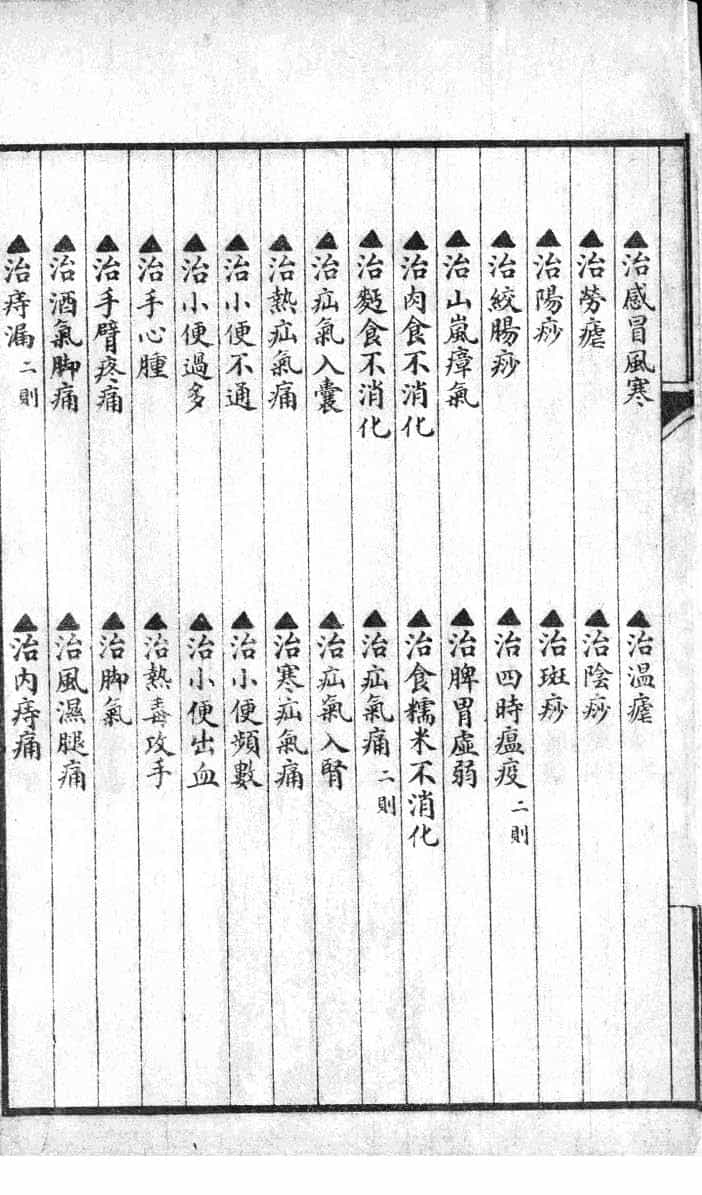 ▲治感冒風寒 ▲治温瘧
▲治勞瘧 ▲治陰痧
▲治陽痧 ▲治斑痧
▲治絞腸痧 ▲治四時瘟疫 二則
▲治山嵐瘴氣 ▲治脾胃虛弱
▲治肉食不消化 ▲治食糯米不消化
▲治麪食不消化 ▲治疝氣痛 二則
▲治疝氣入囊 ▲治疝氣入腎
▲治熱疝氣痛 ▲治寒疝氣痛
▲治小便不通 ▲治小便頻數
▲治小便過多 ▲治小便出血
▲治手心腫 ▲治熱毒攻手
▲治手臂疼痛 ▲治脚氣
▲治酒氣脚痛 ▲治風濕腿痛
▲治痔漏 二則 ▲治內痔痛